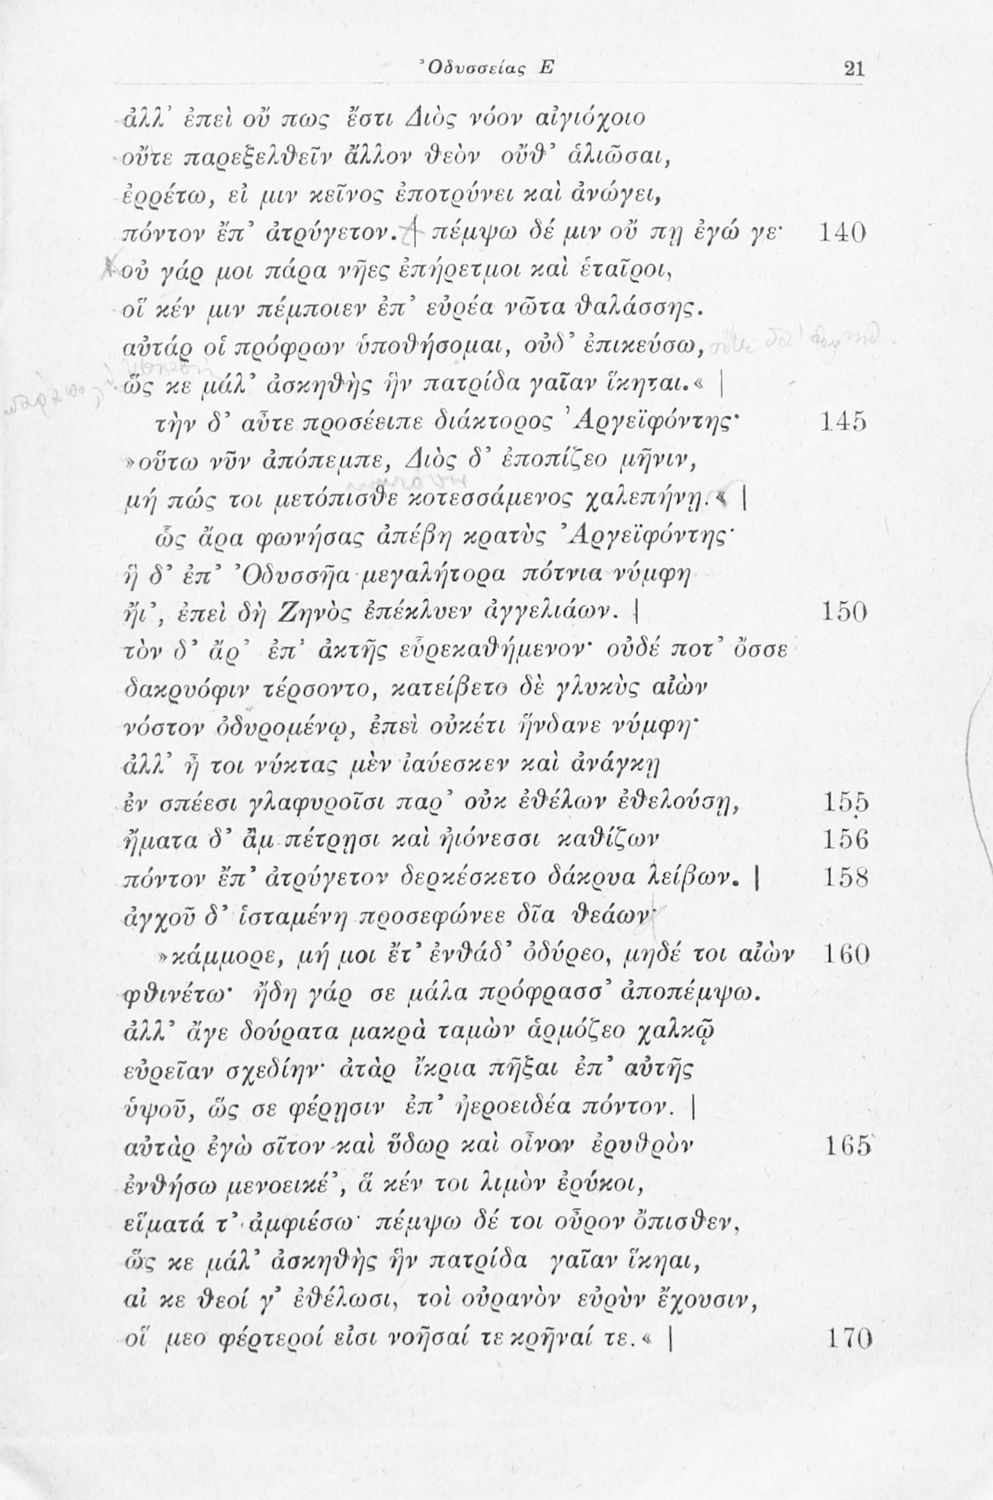 Ὀδυσσείας Ε 21
ἀλλ' ἐπεὶ οὔ πως ἔστι Διὸς νόον αἰγιόχοιο
οὔτε παρεξελθεῖν ἄλλον θεὸν οὔθ' ἁλιῶσαι,
ἐρρέτω, εἰ μιν κεῖνος ἐποτρύνει καὶ ἀνώγει,
πόντον ἔπ' ἀτρύγετον. πέμψω δέ μιν οὔ πῃ ἐγώ γε· 140
οὐ γάρ μοι πάρα νῆες ἐπήρετμοι καὶ ἑταῖροι,
οἵ κέν μιν πέμποιεν ἐπ' εὐρέα νῶτα θαλάσσης.
αὐτάρ οἱ πρόφρων ὑποθήσομαι, οὐδ' ἐπικεύσω,
ὥς κε μάλ' ἀσκηθὴς ἣν πατρίδα γαῖαν ἵκηται.« |
τὴν δ' αὖτε προσέειπε διάκτορος Ἀργεϊφόντης· 145
»οὕτω νῦν ἀπόπεμπε, Διὸς δ' ἐποπίζεο μῆνιν,
μή πώς τοι μετόπισθε κοτεσσάμενος χαλεπήνῃ.« |
ὣς ἄρα φωνήσας ἀπέβη κρατὺς Ἀργεϊφόντης·
ἣ δ' ἐπ' Ὀδυσσῆα μεγαλήτορα πότνια νύμφη
ἤι', ἐπεὶ δὴ Ζηνὸς ἐπέκλυεν ἀγγελιάων. | 150
τὸν δ' ἄρ' ἐπ' ἀκτῆς εὗρεκαθήμενον· οὐδέ ποτ' ὄσσε
δακρυόφιν τέρσοντο, κατείβετο δὲ γλυκὺς αἰὼν
νόστον ὀδυρομένῳ, ἐπεὶ οὐκέτι ἥνδανε νύμφη·
ἀλλ' ἦ τοι νύκτας μὲν ἰαύεσκεν καὶ ἀνάγκῃ
ἐν σπέεσι γλαφυροῖσι παρ' οὐκ ἐθέλων ἐθελούσῃ, 155
ἤματα δ' ἂμ πέτρῃσι καὶ ἠιόνεσσι καθίζων 156
πόντον ἔπ' ἀτρύγετον δερκέσκετο δάκρυα λείβων. | 158
ἀγχοῦ δ' ἱσταμένη προσεφώνεε δῖα θεάων·
»κάμμορε, μή μοι ἔτ' ἐνθάδ' ὀδύρεο, μηδέ τοι αἰὼν 160
φθινέτω· ἤδη γάρ σε μάλα πρόφρασσ' ἀποπέμψω.
ἀλλ' ἄγε δούρατα μακρὰ ταμὼν ἁρμόζεο χαλκῷ
εὐρεῖαν σχεδίην· ἀτὰρ ἴκρια πῆξαι ἐπ' αὐτῆς
ὑψοῦ, ὥς σε φέρῃσιν ἐπ' ἠεροειδέα πόντον. |
αὐτὰρ ἐγὼ σῖτον καὶ ὕδωρ καὶ οἶνον ἐρυθρὸν 165
ἐνθήσω μενοεικέ', ἅ κέν τοι λιμὸν ἐρύκοι,
εἵματά τ' ἀμφιέσω· πέμψω δέ τοι οὖρον ὄπισθεν,
ὥς κε μάλ' ἀσκηθὴς ἣν πατρίδα γαῖαν ἵκηαι,
αἰ κε θεοί γ' ἐθέλωσι, τοὶ οὐρανὸν εὐρὺν ἔχουσιν,
οἵ μεο φέρτεροί εἰσι νοῆσαί τε κρῆναί τε.« | 170